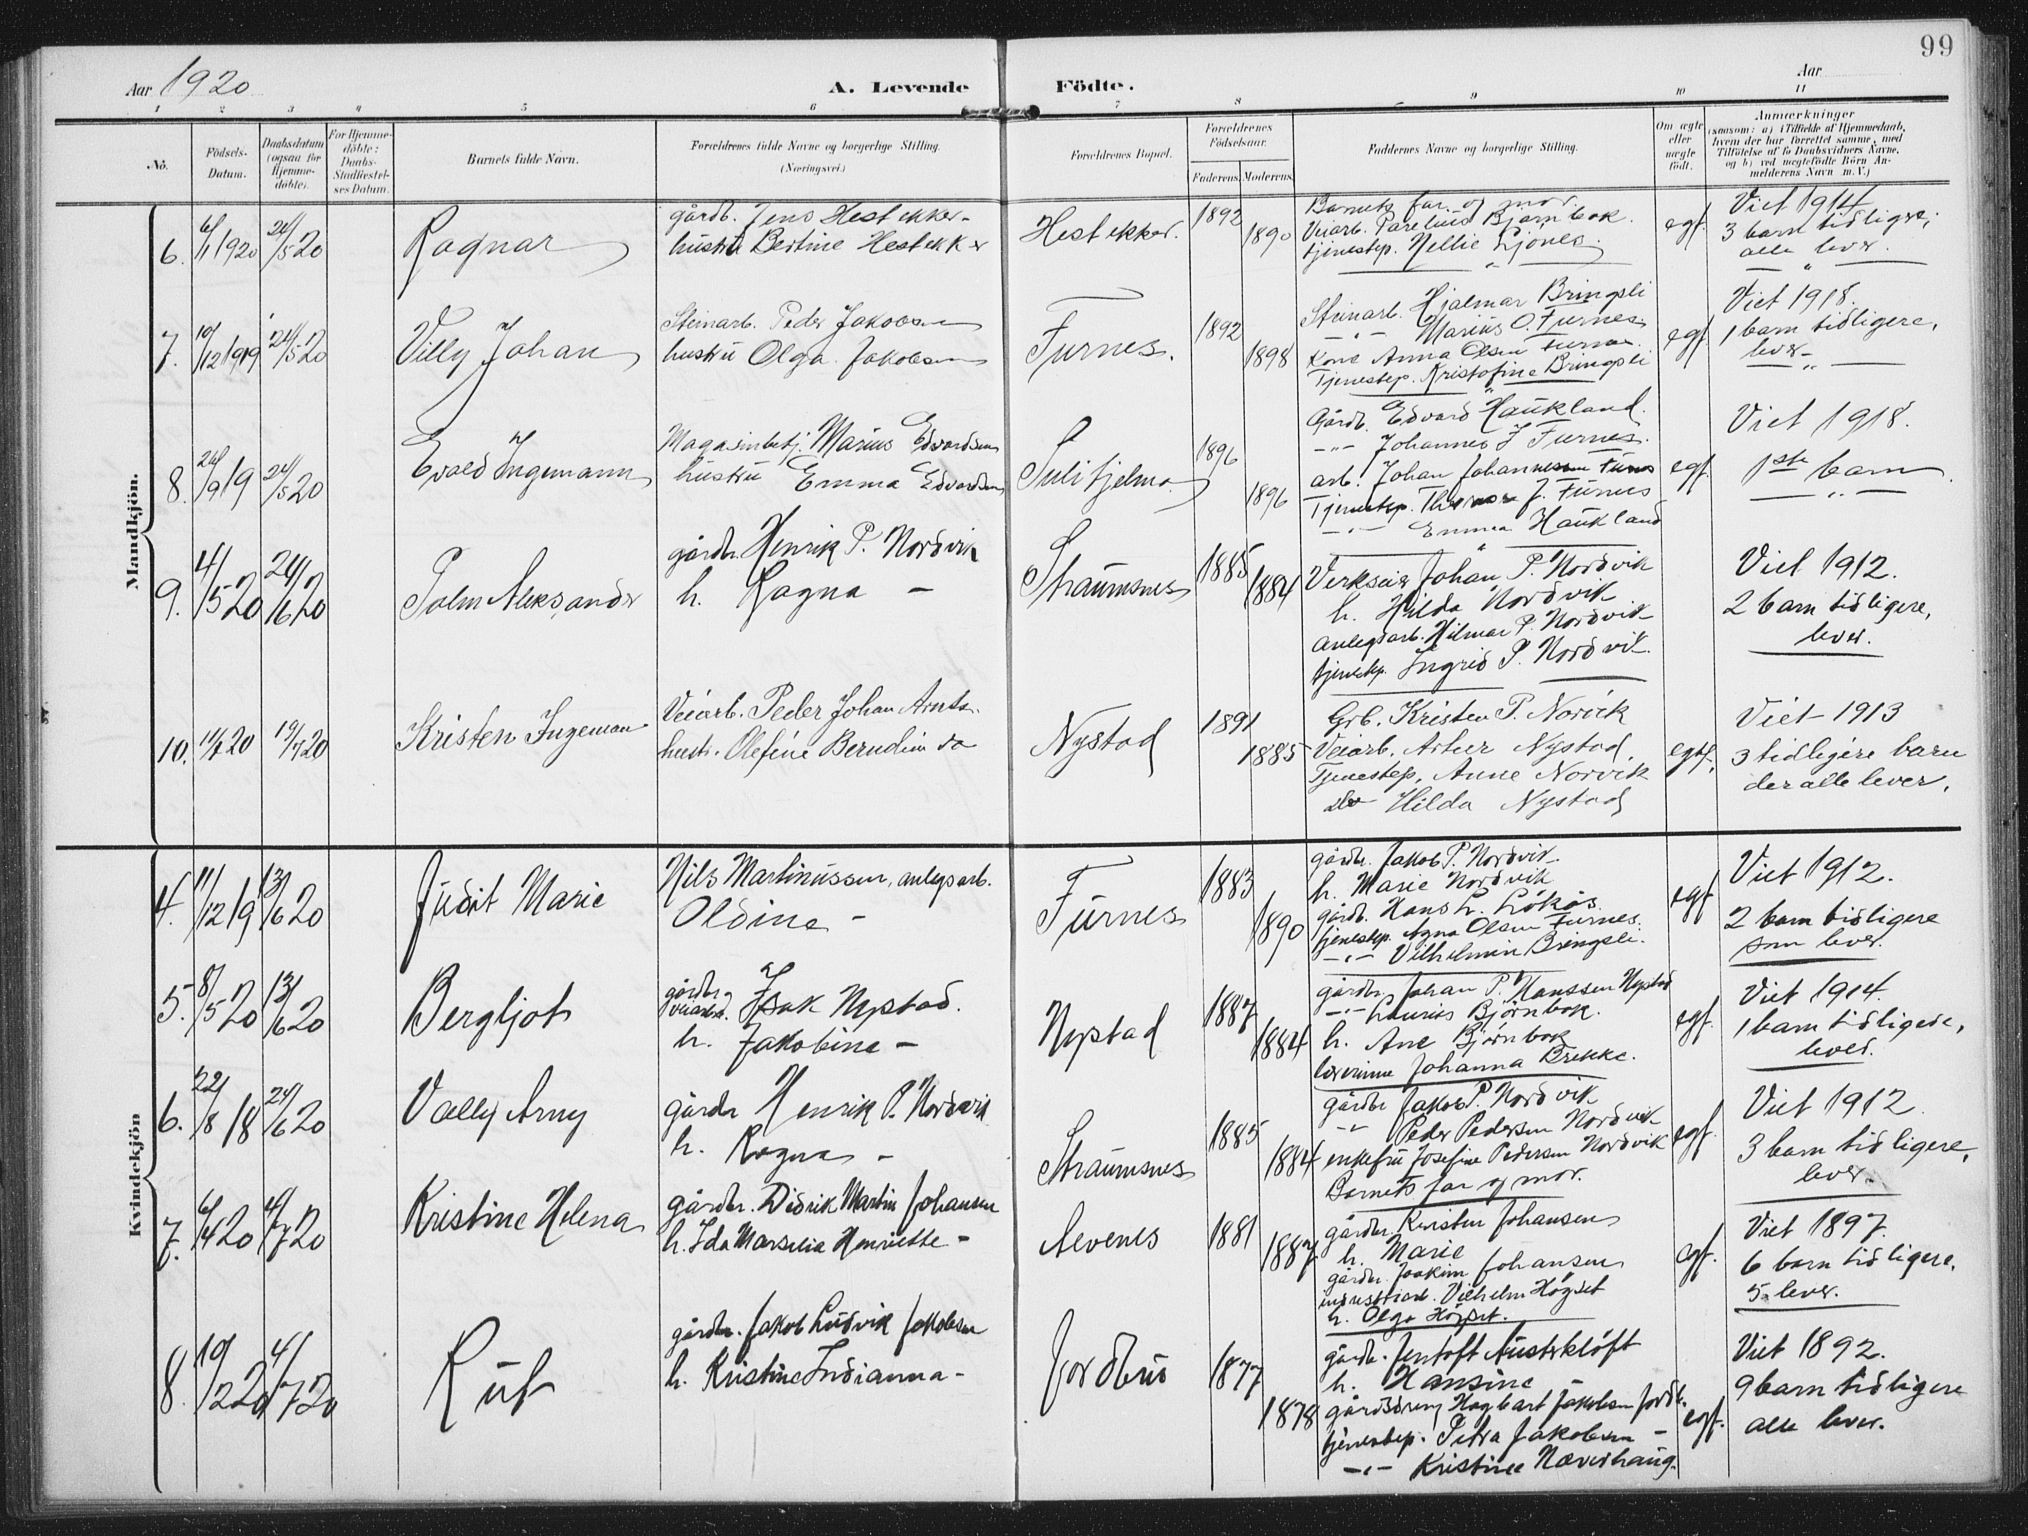 99
Aar 1920
A. Levende Födte.
Aar
1 2 3 4 5 6 7 8 9 10 11
No.
Födsels-Datum.
Daabsdatum (ogsaa for Hjemme-döbte).
For Hjemme-döbte: Daabs-Stadfæstel-ses Datum.
Barnets fulde Navn.
Forældrenes fulde Navne og borgerlige Stilling. (Næringsvei.)
Forældrenes Bopæl.
Forældrenes Födselsaar.
Faderens. Moderens.
Faddernes Navne og borgerlige Stilling.
Om ægte eller uægte født.
Anmærkninger
(saasom: a) i Tilfælde af Hjemmedaab, hvem der har forrettet samme, med Tilföielse af to Daabsvidners Navne, og b) ved uægtefödte Börn An-melderens Navn m. V.)
Mandkjön.
6. 6/1 1920 24/5 20
Ragnar
gårdb. Jens Hestekker-
hustru Bertine Hestekker
Hestekker.
1892
1890
Barnets far og mor.
Veiarb. Parelius Bjørnbak.
tjenestep. Nellie Ljönes.
egf.
Viet 1914
3 barn tidligere;
alle lever.
7. 10/12 1919 24/5 20
Villy Johan
Steinarb. Peder Jakobsen
hustru Olga Jakobsen
Furnes.
1892
1898
Steinarb. Hjalmar Bringsli
-"- Marius O. Furnes.
Kone Anna Olsen Furnes.
Tjenestep. Kristofine Bringsli
egf
Viet 1918.
1 barn tidligere,
lever-
8. 24/9 19 24/5 20
Evald Ingemann
Magasinbetj. Marius Edvardsen
hustru Emma Edvardsen
Sulitjelma
1896
1896
Gårdb. Edvard Haukland.
-"- Johannes J Furnes.
arb. Johan Johannessen Furnes
Tjenestep. J. Furnes
-"- Emma Haukland
egf.
Viet 1918.
1ste barn
9. 4/5 20 24/6 20
Palm Aleksander
gårdbr. Henrik P. Nordvik
h. Ragna -
Straumsnes
1885
1884
Johan P. Nordvik
h. Hilda Nordvik
anlegsarb. Hilmar P. Nordvik
tjenestep. Ingrid P. Nordvik.
Viet 1912.
2 barn tidligere,
lever.
10. 11/1 20 19/7 20
Kristen Ingeman
Veiarb. Peder Johan Arnts.
hustr. Olefine Berndine do
Nystad
1891
1885
Grb. Kristen P. Norvik
Veiarb. Artur Nystad,
Tjenestep, Anne Norvik
do Hilda Nystad
egtf.
Viet 1913
3 tidligere barn
der alle lever.
Kvindekjön
4. 11/12 19 13/6 20
Judit Marie
Nils Martinussen, anlegsarb.
Oldine -
Furnes
1883
1890
gårdbr. Jakob P. Nordvik
h. Marie Nordvik
gårdb. Hans L. Lökås.
tjenestep. Agna Olsen Furnes.
-"- Vilhelmin Bringsli.
egf
Viet 1912.
2 barn tidligere
som lever.
5. 8/5 20 13/6 20
Bergljot
gårdbr.
veiarbd. Isak Nystad.
h. Jakobine -
Nystad
1887
1884
gårdbr. Johan P. Hanssen Nystad
-"- Laurits Bjørnbak.
h. Ane Bjørnbak
lærerinne Johanna Brekke.
egf.
Viet 1914.
1 barn tidligere,
lever.
6. 22/8 18 24/6 20
Vally Arny
gårdbr Henrik P. Nordvik
h. Ragna -
Straumsnes
1885
1884
gårdbr Jakob P. Nordvik
-"- Peder Pedersen Nordvik
enkefru Josefine Pedersen Nordvik
Barnets far og mor.
egf.
Viet 1912.
3 barn tidligere,
lever.
7. 6/4 20 4/7 20
Kristine Helena
gårdbr. Didrik Martin Johansen
h. Ida Marselia Henriette -
Aevenes
1881
1887
gårdbr Kristen Johansen
h. Marie
gårdbr. Joakim Johansen
industriarb. Vilhelm Högset
h. Olga Högset.
egf.
Viet 1897.
6 barn tidligere,
5 lever.
8. 10/2 20 4/7 20
Rut
gårdbr. Jakob Ludvik Jakobsen
h. Kristine Indianna -
Jordbru
1877
1878
gårdbr. Jentoft Austerklöft
h. Hansine
gårdsdreng Hagbart Jakobsen Jordb.
tjenestep. Petra Jakobsen -
-"- Kristine Næverhaug.
egf.
Viet 1892.
9 barn tidligere
alle lever.